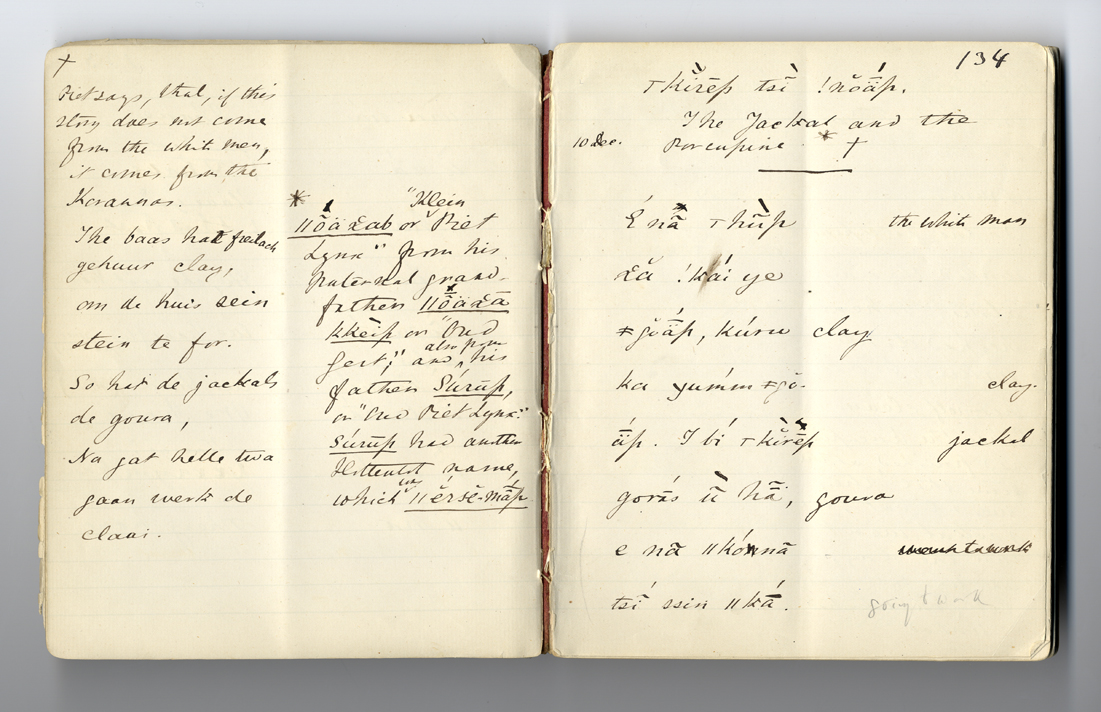 +
Piet says, that, if this
story does not come
from the white men,
it comes from the
Korannas.
The baas hat
gehuur clay,
om de huis sein
stein te for.
So hat de jackals
de goura,
Na gat helle twa
gaan werk de
claai.
* "Klein
ǁõäχab or Piet
Lynx" from his
paternal grand-
father ǁõäχä
kkeip or "Oud
Gert;" and also from his
father Súrup,
or "Oud Piet Lynx."
Súrup had another
Hottentot name,
which was ǁérsĕ-mãp.
134
тkĭrēp tsĩ !nŏäp.
The Jackal and the
10 Dec. Porcupine * +
É nã тhũp the white man
χã !kái ye
ǂgŏáp, kúru clay
ka yumm ǂgŏ- clay.
áp. I bí тkĭrēp jackal
gorás ũ hã, goura
e nã ǁkónnã
tsĩ ssin ǁká. going to work